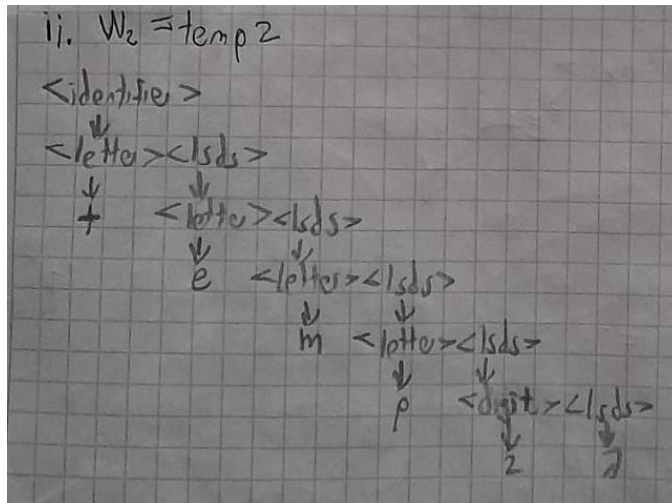 ii. W₂ = temp2
<identifier>
↓
<letter><lsds>
↓ ↓
t <letter><lsds>
↓ ↓
e <letter><lsds>
↓ ↓
m <letter><lsds>
↓ ↓
p <digit><lsds>
↓ ↓
2 λ